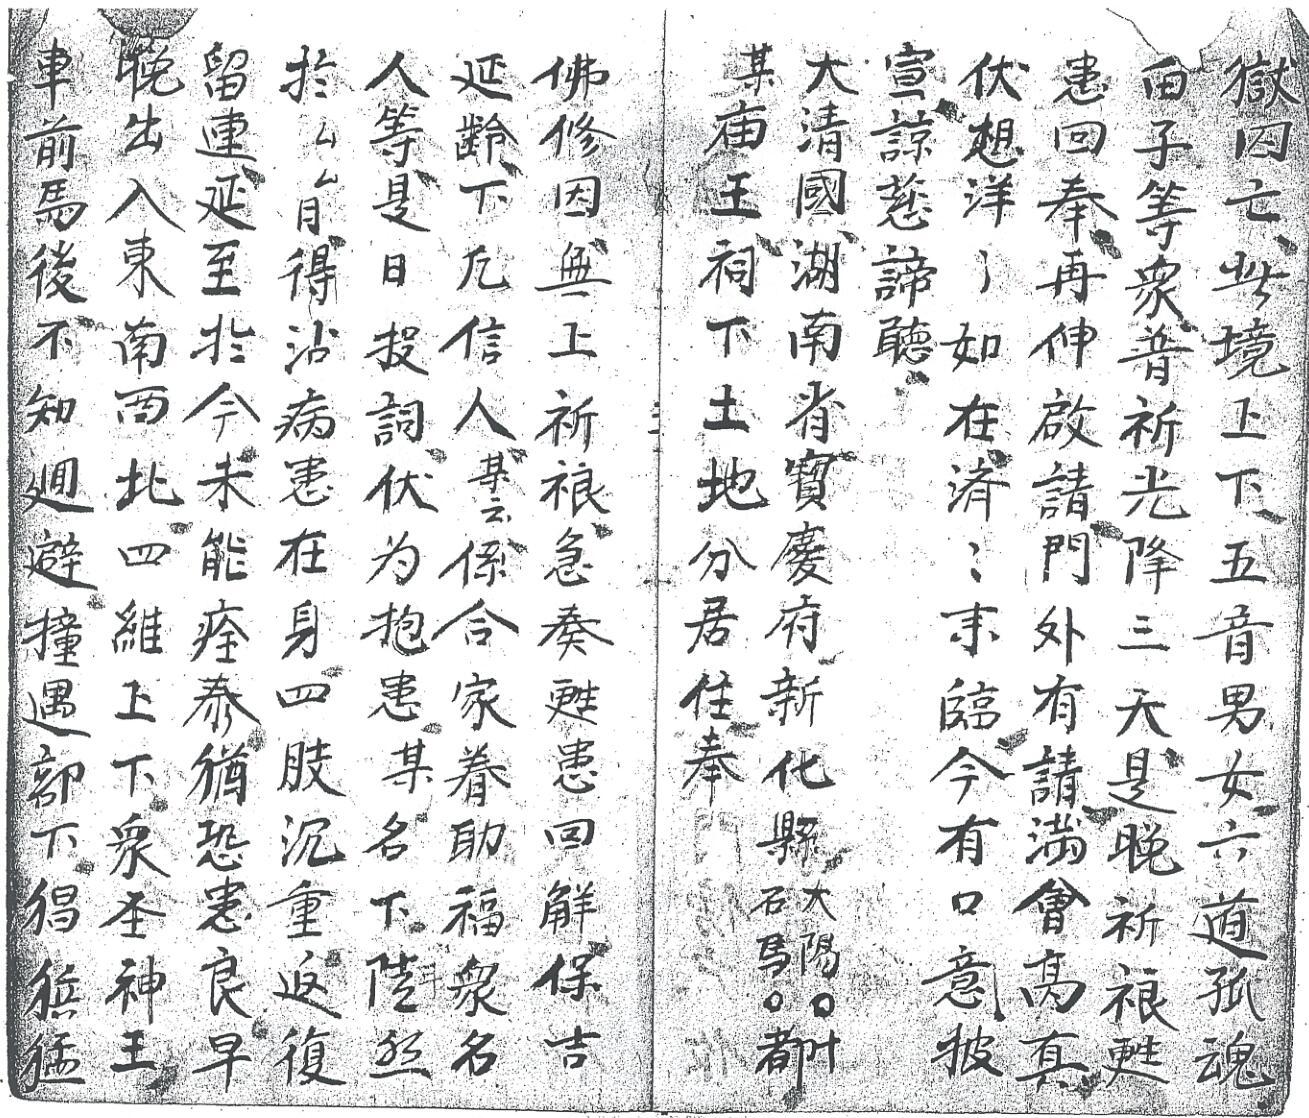 獄囚亡此境上下五音男女六道孤魂
由子等眾普祈光降三天是晚祈禳甦
患回奉再伸啟請門外有請满會高真
伏想洋〻如在済〻来臨今有口意披
宣諒慈諦聽
大清國湖南省寶慶府新化縣大陽〇叶石馬〇都
某庙王祠下土地分居住奉
佛修因無上祈禳急奏甦患回觧保吉
延齡下凡信人某云係合家眷助福眾名
人等是日投詞伏为抱患某名下陡然
扵厶厶月得沾病患在身四肢沉重返復
留連延至扵今未能痊泰猶恐患良早
晚出入東南西北四維上下眾圣神王
車前馬後不知廻避撞遇部下猖兵猛